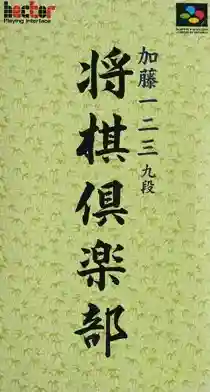 hector
Playing Interface
加藤一二三九段
将棋倶楽部